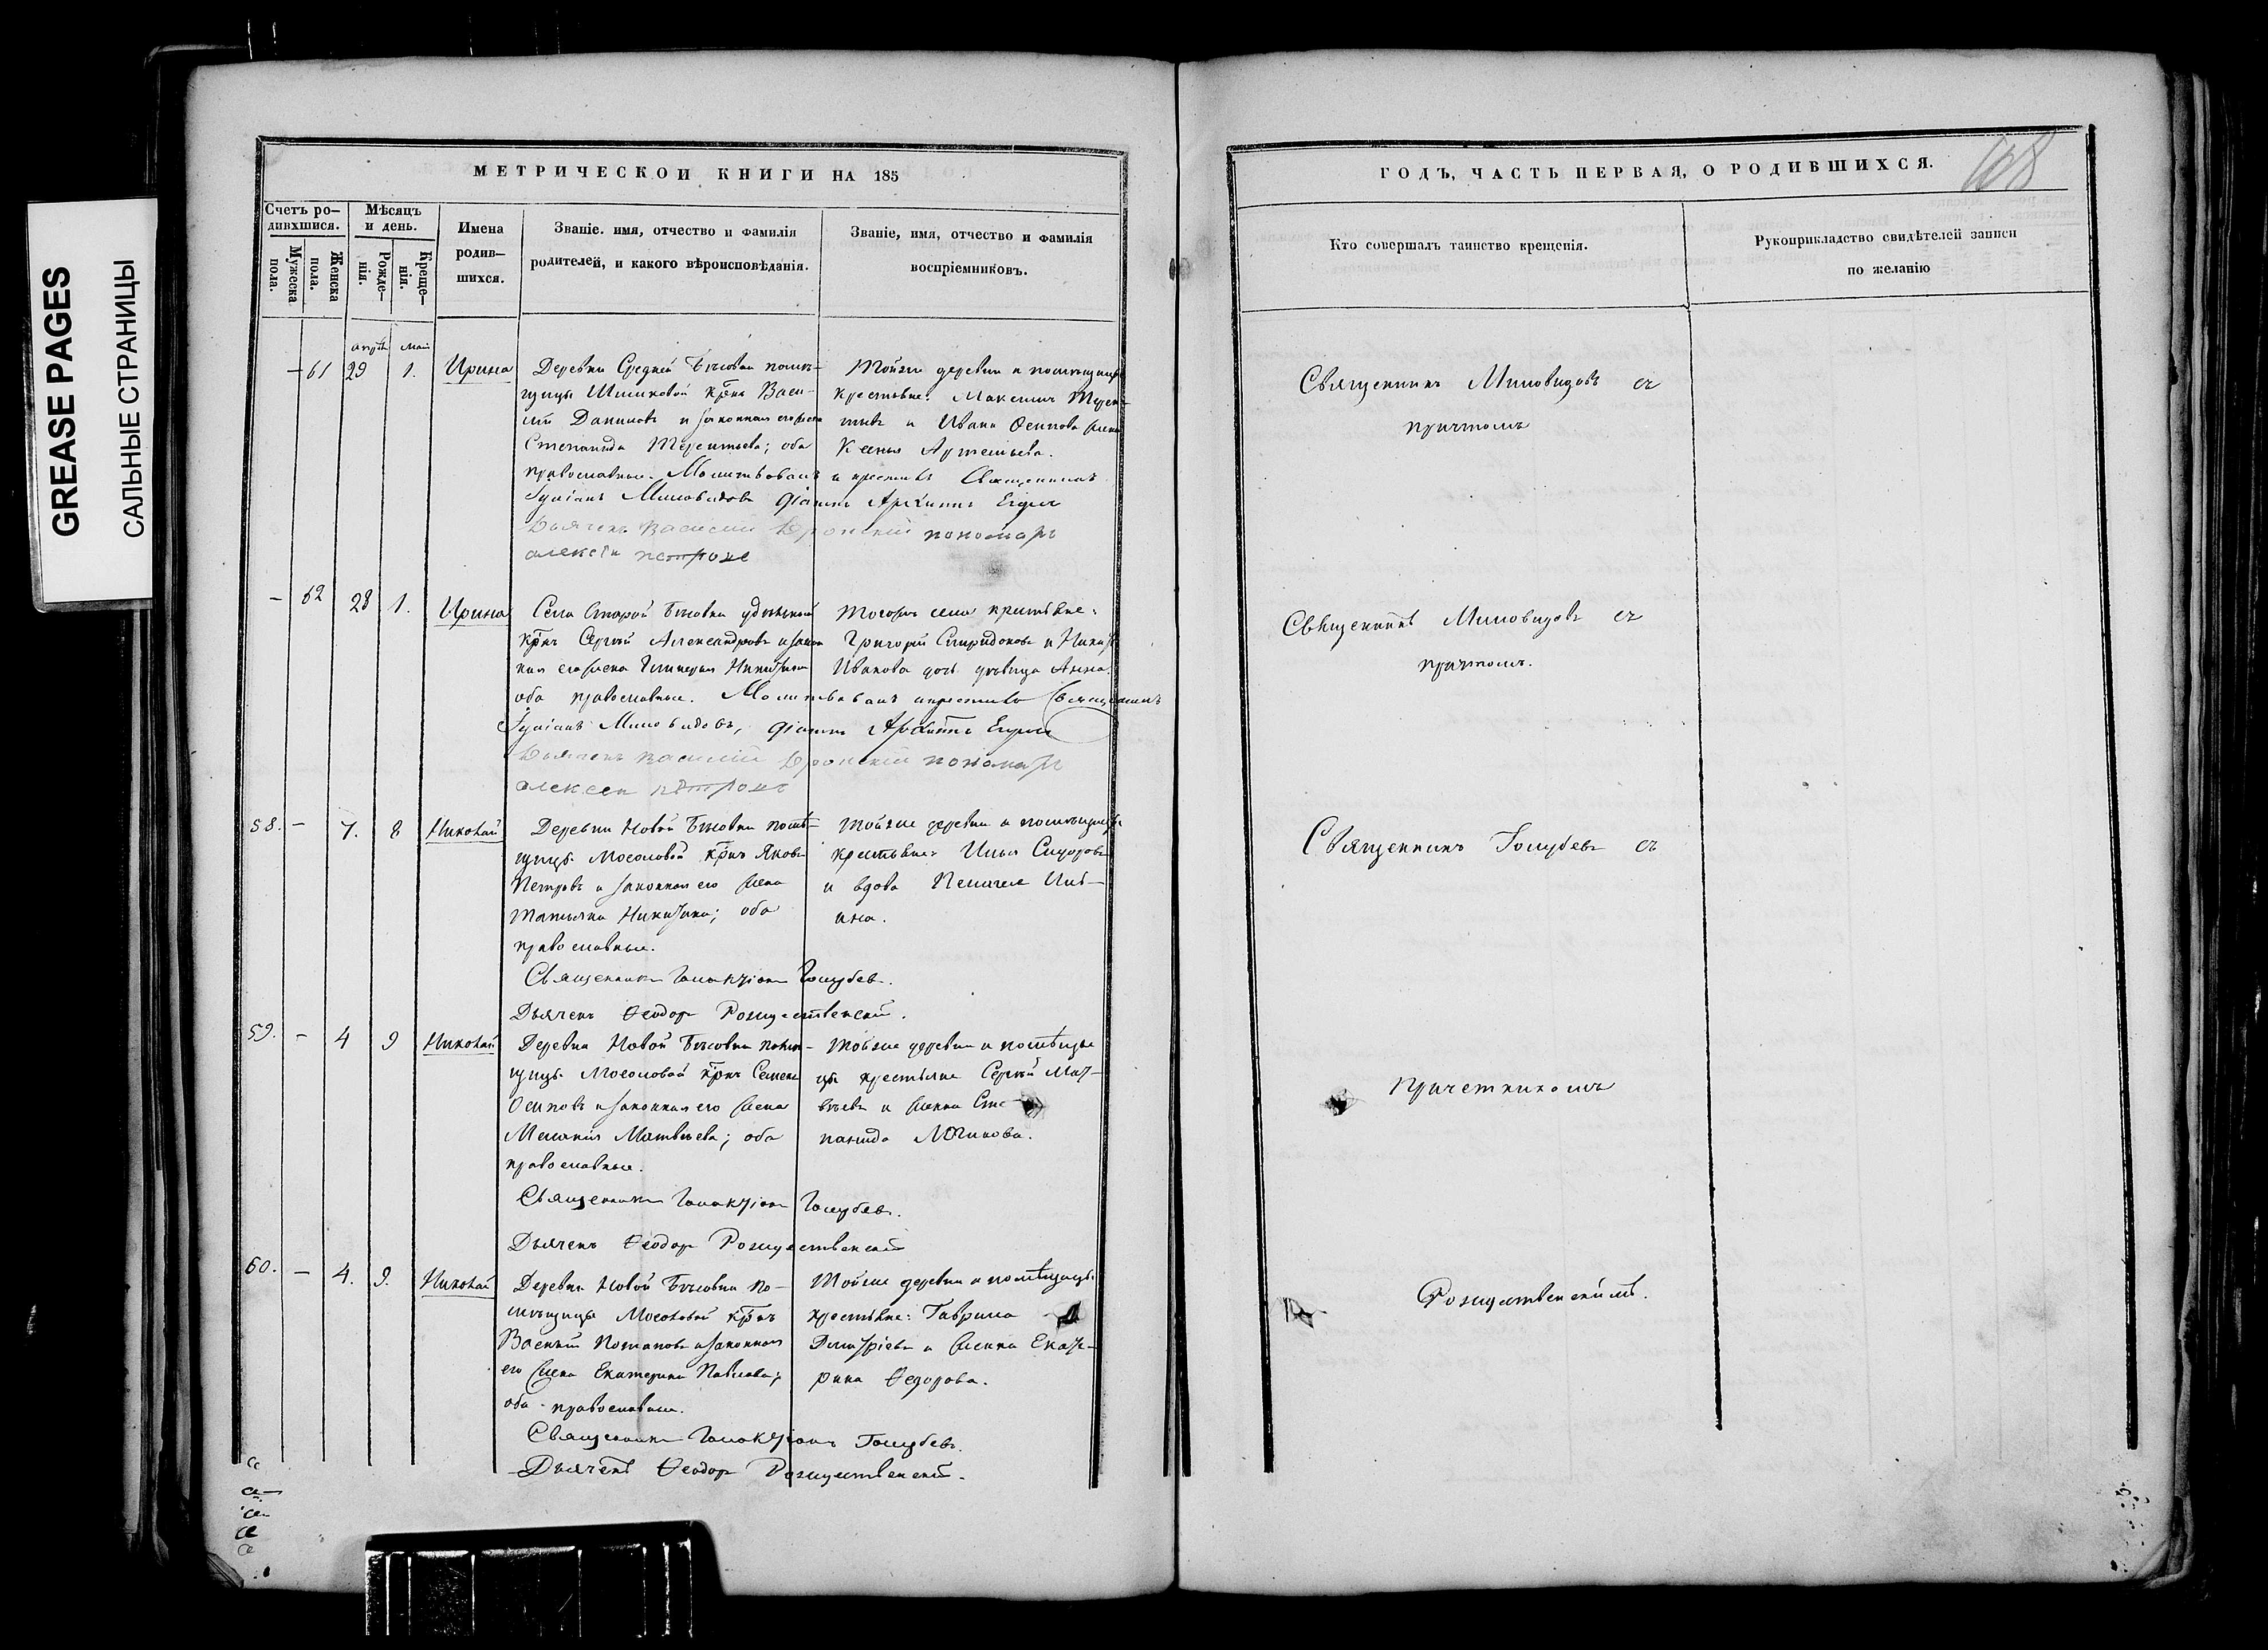 GREASE PAGES
САЛЬНЫЕ СТРАНИЦЫ
МЕТРИЧЕСКОИ КНИГИ НА 185
Счетъ ро-
дивхшися.
Мѣсяцъ
и день.
Мужеска
пола.
Женска
пола.
Рожде-
нія.
Креще-
нія.
Имена
родив-
шихся.
Званіе. имя, отчество и фамилія
родителей, и какого вѣроисповѣданія.
Званіе, имя, отчество и фамилія
воспріемниковъ.
— 61 29 1. Ирина
Деревни Средней помѣ-
щицы крнъ Васи-
лій Даниловъ и законная его жена
Степанида Терентьева; оба
православные. Молитвовалъ и крестилъ Священникъ
Миловидовъ
Дьячекъ Василій пономарь
алексѣи петровъ
Тойже деревни и помѣщицы
крестьяне: Максимъ Терен-
тьевъ и Ивана Осипова жена
Ксенья Артемьева.
— 62 28 1. Ирина
Села Старой удѣльный
крнъ Сергѣй Александровъ и закон
ная его жена Никитина
оба православные. Молитвовалъ и крестилъ Священникъ
Миловидовъ,
Дьячекъ василій пономарь
алексеи петровъ
Тогожъ села крестьяне:
Григорій Спиридоновъ и
Иванова дочь дѣвица Анна.
58. — 7. 8 Николай
Деревни Новой помѣ-
щицы Мосоловой крнъ Яковъ
Петровъ и законная его жена
Татьяна Никитина; оба
православные.
Священникъ Голубевъ.
Дьячекъ Ѳеодоръ Рождественскій.
Тойже деревни и помѣщицы
крестьяне Илья Сидоровъ
и вдова Пелагея Иль-
ина.
59. — 4 9 Николай
Деревни Новой помѣ-
щицы Мосоловой крнъ Семенъ
Осиповъ и законная его жена
Меланія Матвѣева; оба
православные.
Священникъ Голубевъ.
Дьячекъ Ѳеодоръ Рождественскій
Тойже деревни и помѣщи-
цы крестьяне Сергѣй Мат-
вѣевъ и женка Сте-
панида Логинова.
60. — 4. 9. Николай
Деревни Новой По-
мѣщицы Мосоловой крнъ
Василій Потаповъ и законная
его жена Екатерина Павлова;
оба православные.
Священникъ Голубевъ.
Дьячекъ Ѳеодоръ Рождественскій.
Тойже деревни и помѣщицы
крестьяне: Гаврила
Дмитріевъ и женка Екате-
рина Ѳедорова.
ГОДЪ, ЧАСТЬ ПЕРВАЯ, О РОДИВШИХСЯ.
Кто совершалъ таинство крещенія.
Рукоприкладство свидѣтелей записи
по желанію
Священникъ Миловидовъ съ
причтомъ
Священникъ Миловидовъ съ
причтомъ.
Священникъ Голубевъ съ
Причетникомъ
Рождественскимъ.